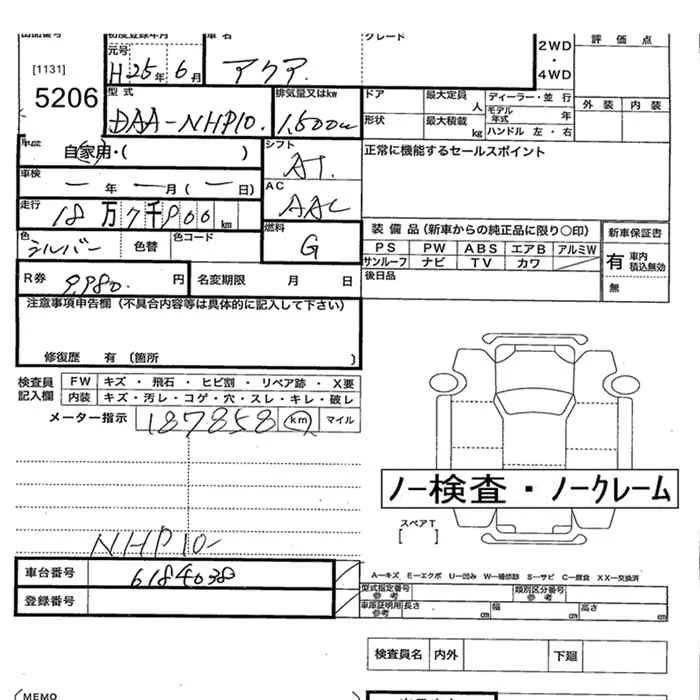 出品番号 初度登録年月 車名 グレード
[1131]
5206
元号
H25年 6月
アクア
2WD
・
4WD
評価点
外装 内装
型式
DAA-NHP10.
排気量又はkw
1,500cc
ドア 最大定員 人
形状 最大積載 kg
ディーラー・並行
モデル年式 年
ハンドル 左・右
自家用・( )
シフト
AT.
正常に機能するセールスポイント
車検
ー 年 ー 月 ( ー 日)
AC
AAC
走行
18万7千900km
燃料
G
装備品(新車からの純正品に限り〇印)
新車保証書
色
シルバー
色替
色コード
PS PW ABS エアB アルミW
サンルーフ ナビ TV カワ
有 車内積込無効
無
R券
9,980.円
名変期限 月 日
後日品
注意事項申告欄(不具合内容等は具体的に記入して下さい)
修復歴 有(箇所 )
検査員記入欄
FW キズ・飛石・ヒビ割・リペア跡・X要
内装 キズ・汚レ・コゲ・穴・スレ・キレ・破レ
メーター指示 187858 km マイル
ノー検査・ノークレーム
スペアT
[ ]
NHP10-
車台番号 6184038
登録番号
A-キズ E-エクボ U-凹み W-補修跡 S-サビ C-腐食 XX-交換済
型式指定番号 参考 類別区分番号 参考
車庫証明用 参考 長さ cm 幅 cm 高さ cm
検査員名 内外 下廻
MEMO